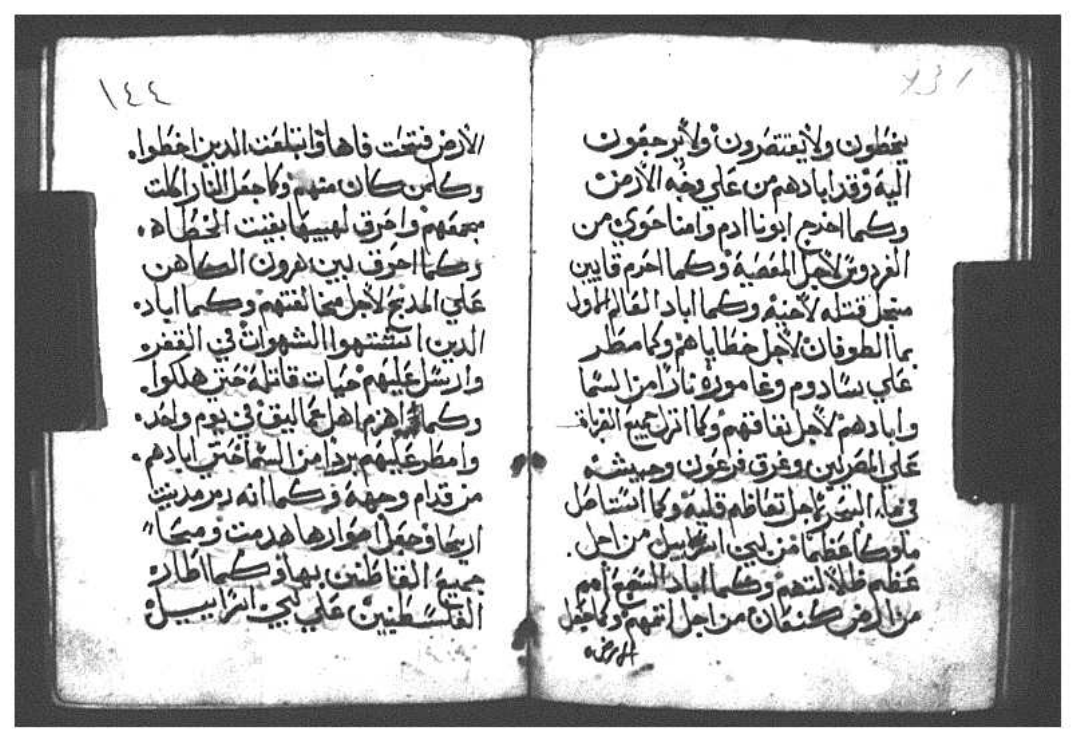 يخطون ولا يقتصرون ولا يرجعون
اليه وقد ابادهم من علي وجه الارض
وكما اخرج ابونا ادم وامنا حوي من
الفردوس لاجل المعصية وكما احرم قايين
من اجل قتله لاخيه وكما اباد العالم الاول
بما الطوفان لاجل خطاياهم وكما مطر
علي سادوم وغاموره نارا من السما
وابادهم لاجل نفاقهم وكما انزل جميع
علي المصريين وغرق فرعون وجيشه
في ماء البحر لاجل تعاظم قلبه وكما استاصل
ملوكا عظما من بني اسراييل من اجل
عظم ضلالتهم وكما اباد السبع امم
من ارض كنعان من اجل وكما جعل
الارض
١٤٤
الارض فتحت فاها وابتلعت الدين اخطوا
وكلمن كان منهم وكما جعل النار اكلت
مجمعهم واحرق لهيبها بقيت الخطاه
وكما احرق بنين هرون الكاهن
علي المدبح لاجل مخالفتهم وكما اباد
الدين اشتهوا الشهوات في القفر
وارسل عليهم حيات قاتله حتي هلكوا
وكما اهزم اهل عماليق في يوم واحد
وامطر عليهم بردا من السما حتي ابادهم
من قدام وجهه وكما انه دمر مدينة
اريحا وجعل اصوارها هدمت ومحا
جميع القاطنين بها وكما اطار
الفلسطنيين علي بني اسراييل